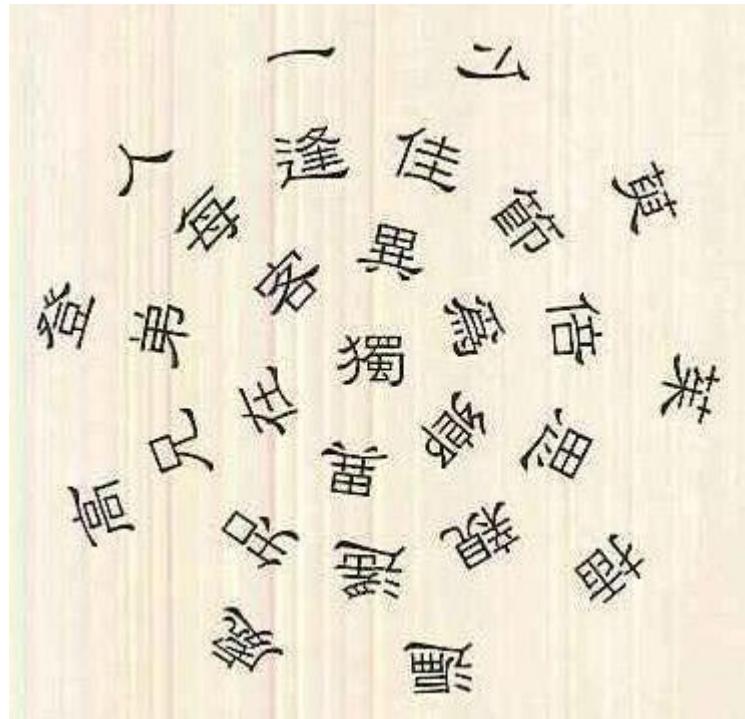 獨在異鄉爲異客每逢佳節倍思親遙知兄弟登高處遍插茱萸少一人